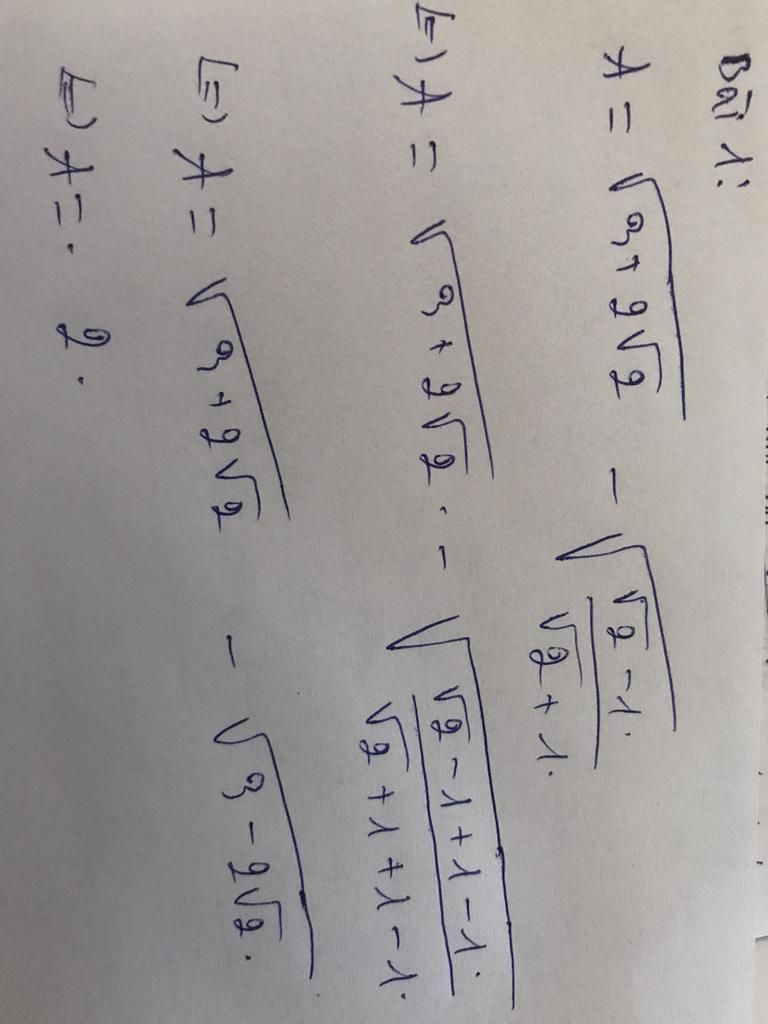 Bài 1:
A = √(3 + 2√2) - √((√2 - 1.)/(√2 + 1.))
(=) A = √(3 + 2√2) . - √((√2 - 1 + 1 - 1.)/(√2 + 1 + 1 - 1.))
(=) A = √(3 + 2√2) - √(3 - 2√2) .
(=) A = . 2 .